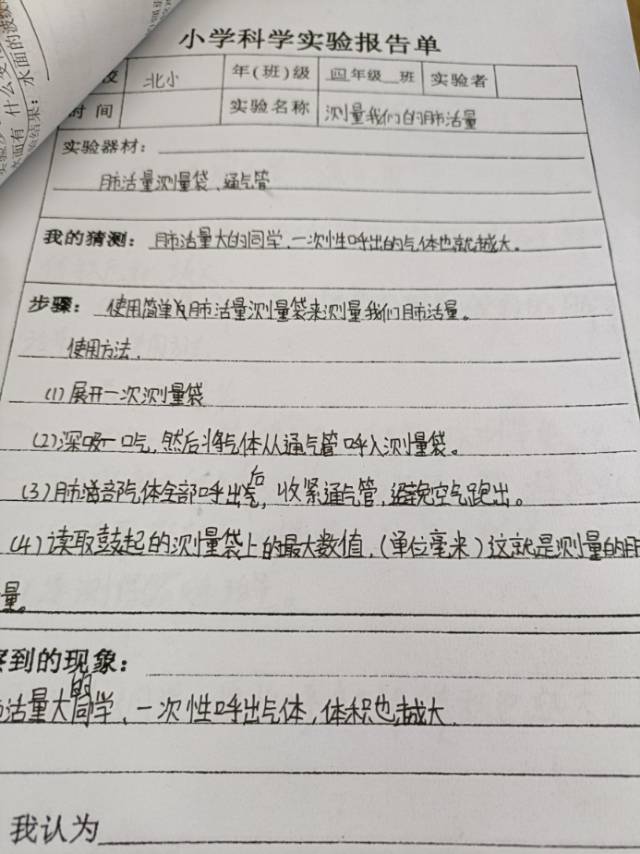 小学科学实验报告单
校 北小 年(班)级 四年级 班 实验者
时间 实验名称 测量我们的肺活量
实验器材:
肺活量测量袋、通气管
我的猜测: 肺活量大的同学,一次性呼出的气体也就越大。
步骤: 使用简单的肺活量测量袋来测量我们肺活量。
使用方法.
(1)展开一次测量袋
(2)深吸一口气,然后将气体从通气管呼入测量袋。
(3)肺部气体全部呼出后,收紧通气管,避免空气跑出。
(4)读取鼓起的测量袋上的最大数值.(单位毫米)这就是测量的肺
量。
察到的现象:
活量大的同学、一次性呼出气体,体积也越大.
我认为
水面有 什么变
实验结果: 水面的波